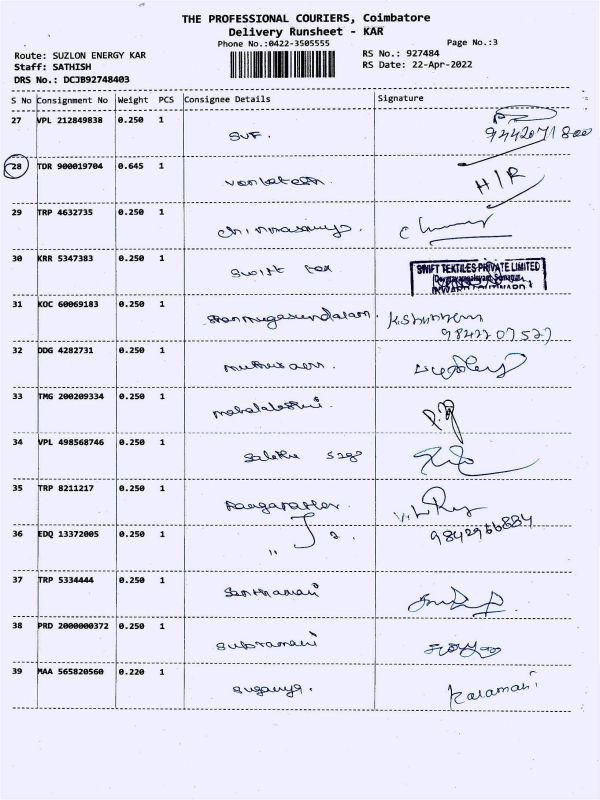 THE PROFESSIONAL COURIERS, Coimbatore
Delivery Runsheet - KAR
Phone No.:0422-3505555
Page No.:3
Route: SUZLON ENERGY KAR
RS No.: 927484
Staff: SATHISH
RS Date: 22-Apr-2022
DRS No.: DCJB92748403
S No Consignment No Weight PCS Consignee Details Signature
27 VPL 212849838 0.250 1
SVF.
9442071800
28 TDR 900019704 0.645 1
venkatesh.
H/R
29 TRP 4632735 0.250 1
chinnasamy.
30 KRR 5347383 0.250 1
swift tex
SWIFT TEXTILES PRIVATE LIMITED
31 KOC 60069183 0.250 1
shanmugasundaram.
9842207527
32 DDG 4282731 0.250 1
33 TMG 200209334 0.250 1
mahalakshmi.
34 VPL 498568746 0.250 1
sakthi sago
35 TRP 8211217 0.250 1
36 EDQ 13372005 0.250 1
" 2.
9842966884
37 TRP 5334444 0.250 1
santhamani
38 PRD 2000000372 0.250 1
subramani
39 MAA 565820560 0.220 1
suganya.
Karamani